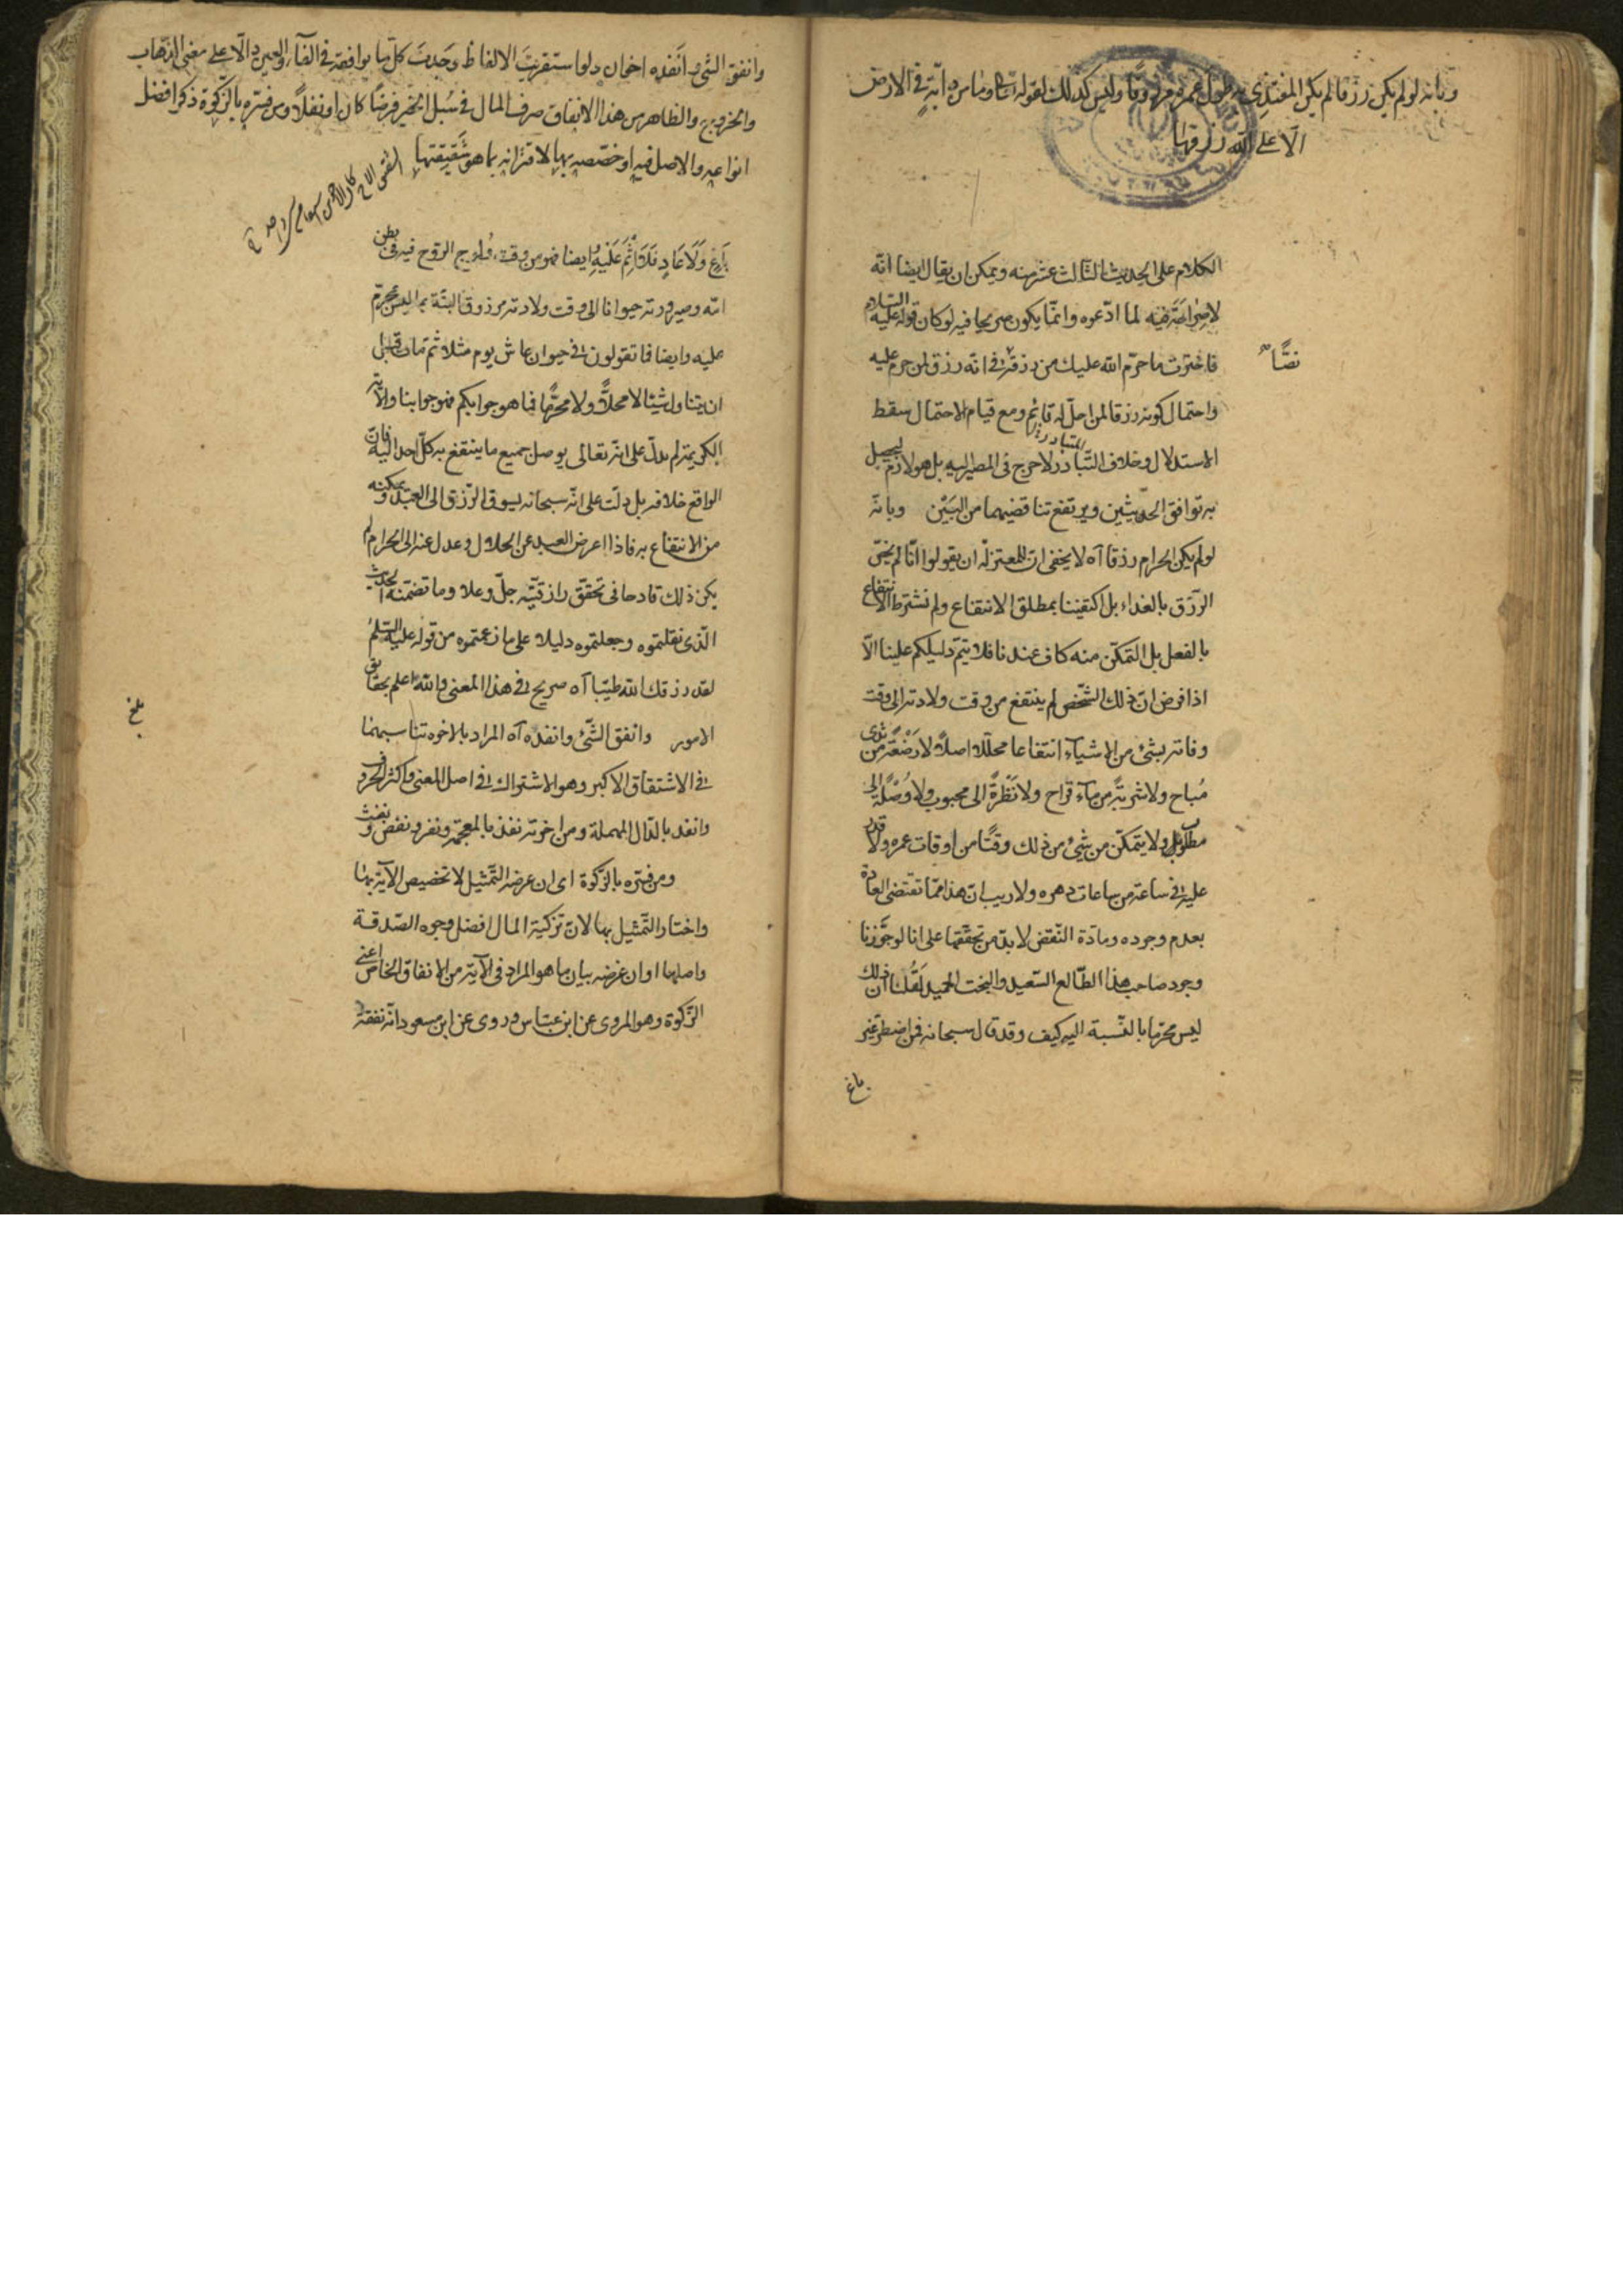 وبانه لو لم يكن رزقا لم يكن المغتذى به طول عمره مرزوقا وليس كذلك لقوله تعالى وما من دابة في الارض
الا على الله رزقها
الكلام على الحديث الثالث عشر منه ويمكن ان يقال ايضا انه
لا صراحة فيه لما ادعوه وانما يكون صريحا فيه لو كان قوله عليه السلام
نصا
فاخترت ما حرم الله عليك من رزقه في انه رزق لمن حرم عليه
واحتمال كونه رزقا لمن احل له قائم ومع قيام الاحتمال سقط
الاستدلال وخلاف التبادر لا حرج في المصير اليه بل هو لازم ليحصل
به توافق الحديثين ويرتفع تناقضهما من البين وبانه
لو لم يكن الحرام رزقا آه لا يخفى ان للمعتزلة ان يقولوا انا لم نخص
الرزق بالغذاء بل اكتفينا بمطلق الانتفاع ولم نشترط الانتفاع
بالفعل بل التمكن منه كاف عندنا فلا يتم دليلكم علينا الا
اذا فرض ان ذلك الشخص لم ينتفع من وقت ولادته الى وقت
وفاته بشئ من الاشياء انتفاعا محللا اصلا لا رضعة من ثدى
مباح ولا شربة من ماء قراح ولا نظرة الى محبوب ولا وصلة الى
مطلوب ولا يتمكن من شئ من ذلك وقتا من اوقات عمره ولا قدر
عليه في ساعة من ساعات دهره ولا ريب ان هذا مما تقتضى العادة
بعدم وجوده ومادة النقض لا بد من تحققها على انا لو جوزنا
وجود صاحب هذا الطالع السعيد والبخت الحميد لقلنا ان ذلك
ليس محرما بالنسبة اليه كيف وقد قال سبحانه فمن اضطر غير
باغ
وانفق الشئ وانفده اخوان ولو استقريت الالفاظ وجدت كل ما يوافقه في الفاء والعين دالا على معنى الذهاب
والخروج والظاهر من هذا الانفاق صرف المال في سبل الخير فرضا كان او نفلا ومن فسره بالزكوة ذكر افضل
انواعه والاصل فيه او خصصه بها لاقترانه بما هو شقيقتها
باغ ولا عاد فلا اثم عليه وايضا فهو من وقت ولوج الروح فيه في بطن
امه وصيرورته حيوانا الى وقت ولادته مرزوق البتة بما ليس بمحرم
عليه وايضا فما تقولون في حيوان عاش يوم مثلا ثم مات قبل
ان يتناول شيئا لا محللا ولا محرما فما هو جوابكم فهو جوابنا والآية
الكريمة لم تدل على انه تعالى يوصل جميع ما ينتفع به كل احد اليه فان
الواقع خلافه بل دلت على انه سبحانه يسوق الرزق الى العبد ويمكنه
من الانتفاع به فاذا اعرض العبد عن الحلال وعدل عنه الى الحرام لم
يكن ذلك قادحا في تحقق رازقيته جل وعلا وما تضمنه الحديث
الذى نقلتموه وجعلتموه دليلا على ما زعمتموه من قوله عليه السلم
لقد رزقك الله طيبا آه صريح في هذا المعنى والله اعلم بحقايق
بلغ
الامور وانفق الشئ وانفده آه المراد بالاخوه تناسبهما
في الاشتقاق الاكبر وهو الاشتراك في اصل المعنى واكثر الحروف
وانفد بالدال المهملة ومن اخوته نفذ بالمعجمة ونفر ونفض ونفث
ومن فسره بالزكوة اى ان غرضه التمثيل لا تخصيص الآية بها
واختار التمثيل بها لان تزكية المال افضل وجوه الصدقة
واصلها او ان غرضه بيان ما هو المراد في الآية من الانفاق الخاص اعنى
الزكوة وهو المروى عن ابن عباس وروى عن ابن مسعود انه نفقة